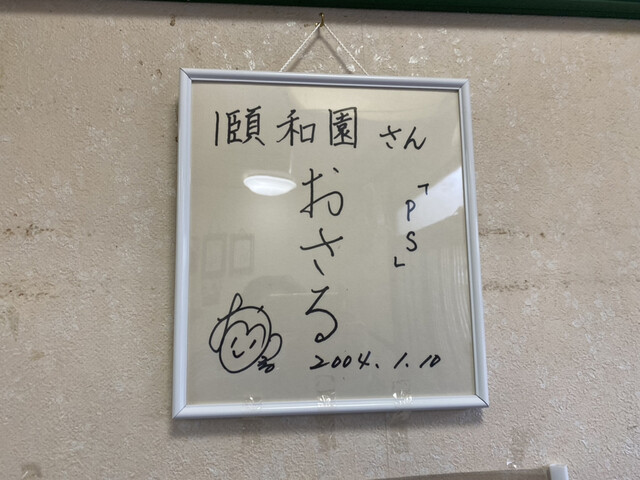 頤和園 さん
「PS」
おさる
2004.1.10